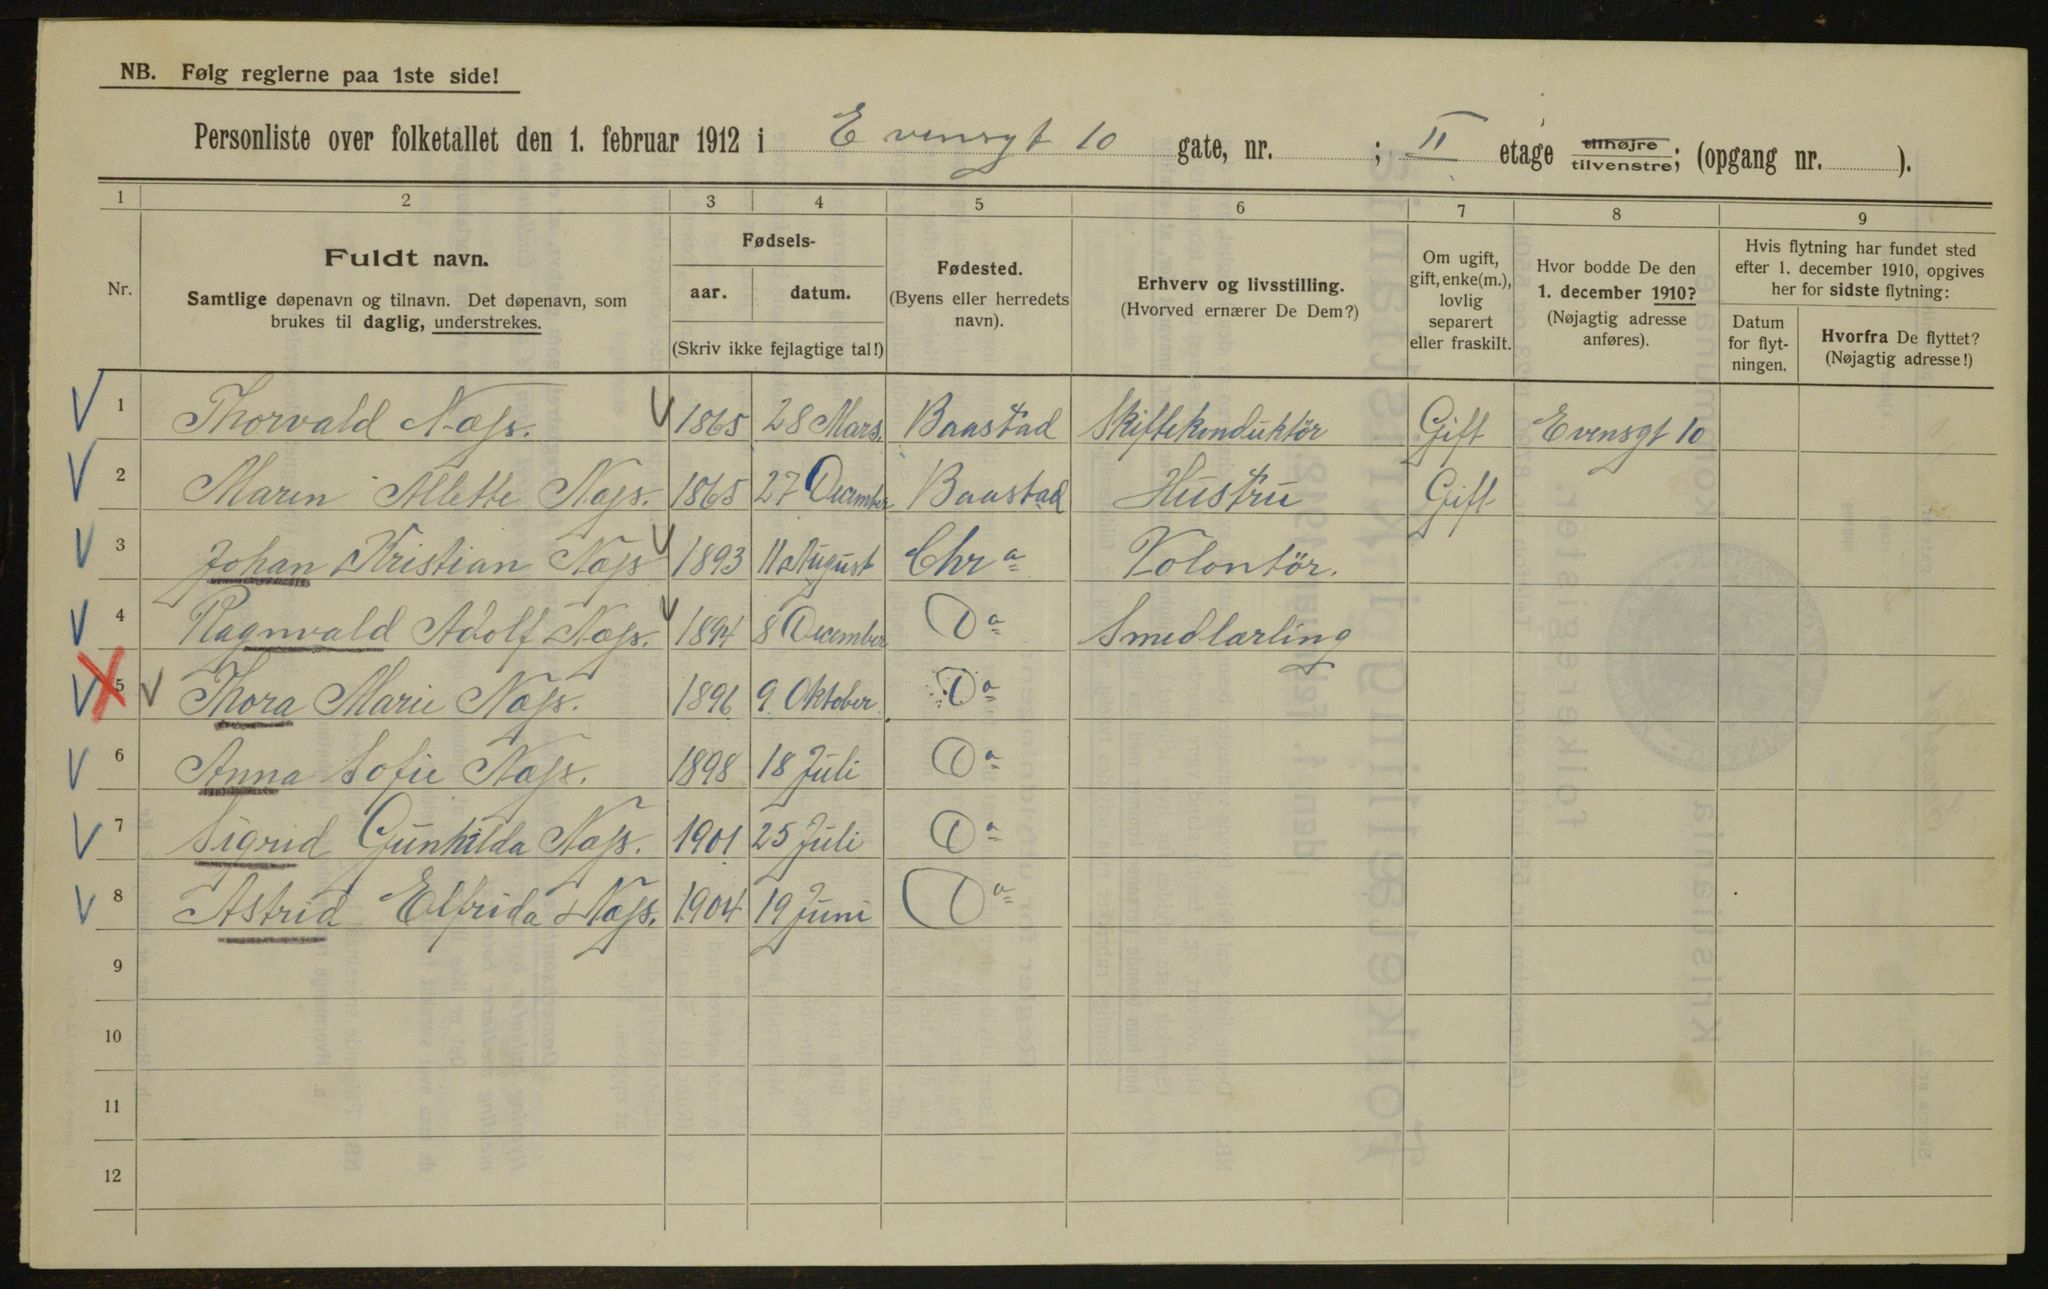 NB. Følg reglerne paa 1ste side!
Personliste over folketallet den 1. februar 1912 i Evensgt 10 gate, nr. ; II etage tilhøjre tilvenstre; (opgang nr. ).
1 2 3 4 5 6 7 8 9
Nr.
Fuldt navn.
Samtlige døpenavn og tilnavn. Det døpenavn, som
brukes til daglig, understrekes.
Fødsels-
aar. datum.
(Skriv ikke fejlagtige tal!)
Fødested.
(Byens eller herredets
navn).
Erhverv og livsstilling.
(Hvorved ernærer De Dem?)
Om ugift,
gift, enke(m.),
lovlig
separert
eller fraskilt.
Hvor bodde De den
1. december 1910?
(Nøjagtig adresse
anføres).
Hvis flytning har fundet sted
efter 1. december 1910, opgives
her for sidste flytning:
Datum
for flyt-
ningen.
Hvorfra De flyttet?
(Nøjagtig adresse!)
1 Thorvald Næss. 1865 28 Mars. Baastad Skiftekonduktör Gift Evensgt 10
2 Maren Allette Næss. 1865 27 December Baastad Hustru Gift
3 Johan Kristian Næss 1893 11 August Chra Volontör.
4 Ragnvald Adolf Næss. 1894 8 December Da Smedlærling
5 Thora Marie Næss. 1896 9 Oktober. Da
6 Anna Sofie Næss. 1898 18 Juli Da
7 Sigrid Gunhilda Næss. 1901 25 Juli Da
8 Astrid Elfrida Næss. 1904 19 Juni Da
9
10
11
12